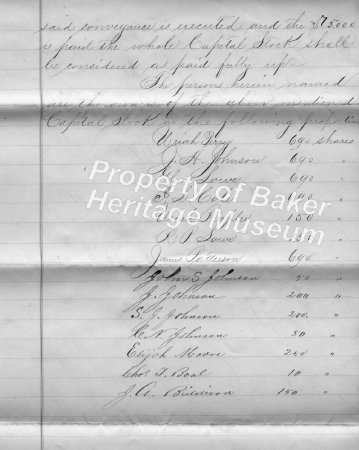 said conveyance is executed and the $75000
is paid the whole Capital Stock shall
be considered a paid fully up.
The persons herein named
are the owners of the above mentioned
Capital Stock in the following proportion
Uriah Perry 690 shares
J. H. Johnson 690 "
Lowe 690 "
Property of Baker
Heritage Museum
150 "
Lowe
James Patterson 690 "
John S Johnson 50 "
J. Johnson 200 "
S. J. Johnson 200 "
C. N. Johnson 50 "
Elijah Moore 250 "
Chas T. Beal 10 "
J. A. 150 "